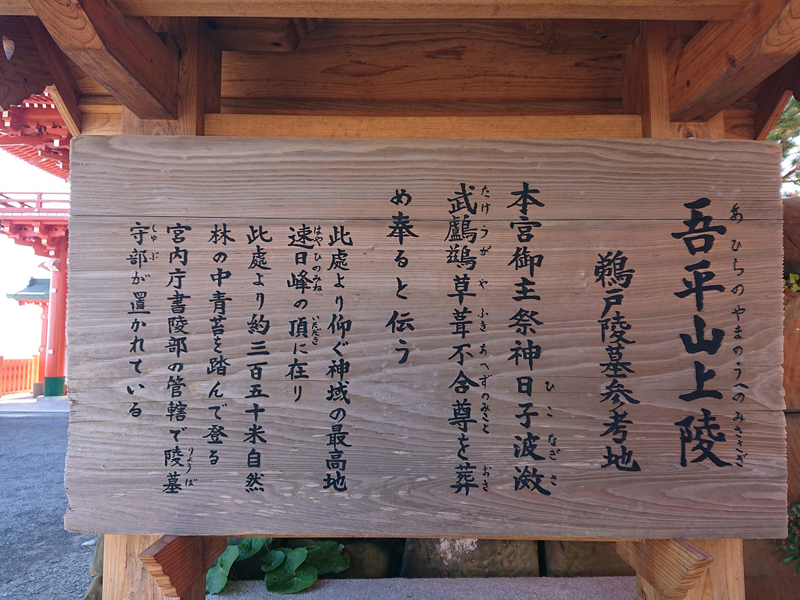 吾平山上陵
あひらのやまのうへのみさきぎ
鵜戸陵墓参考地
本宮御主祭神日子波瀲
ひこなぎさ
武鸕鷀草葺不合尊を葬
たけうがやふきあへずのみこと おさ
め奉ると伝う
此處より仰ぐ神域の最高地
速日峰の頂に在り
はやひのみね いただき
此處より約三百五十米自然
林の中青苔を踏んで登る
宮内庁書陵部の管轄で陵墓
りょうぼ
守部が置かれている
しゅぶ